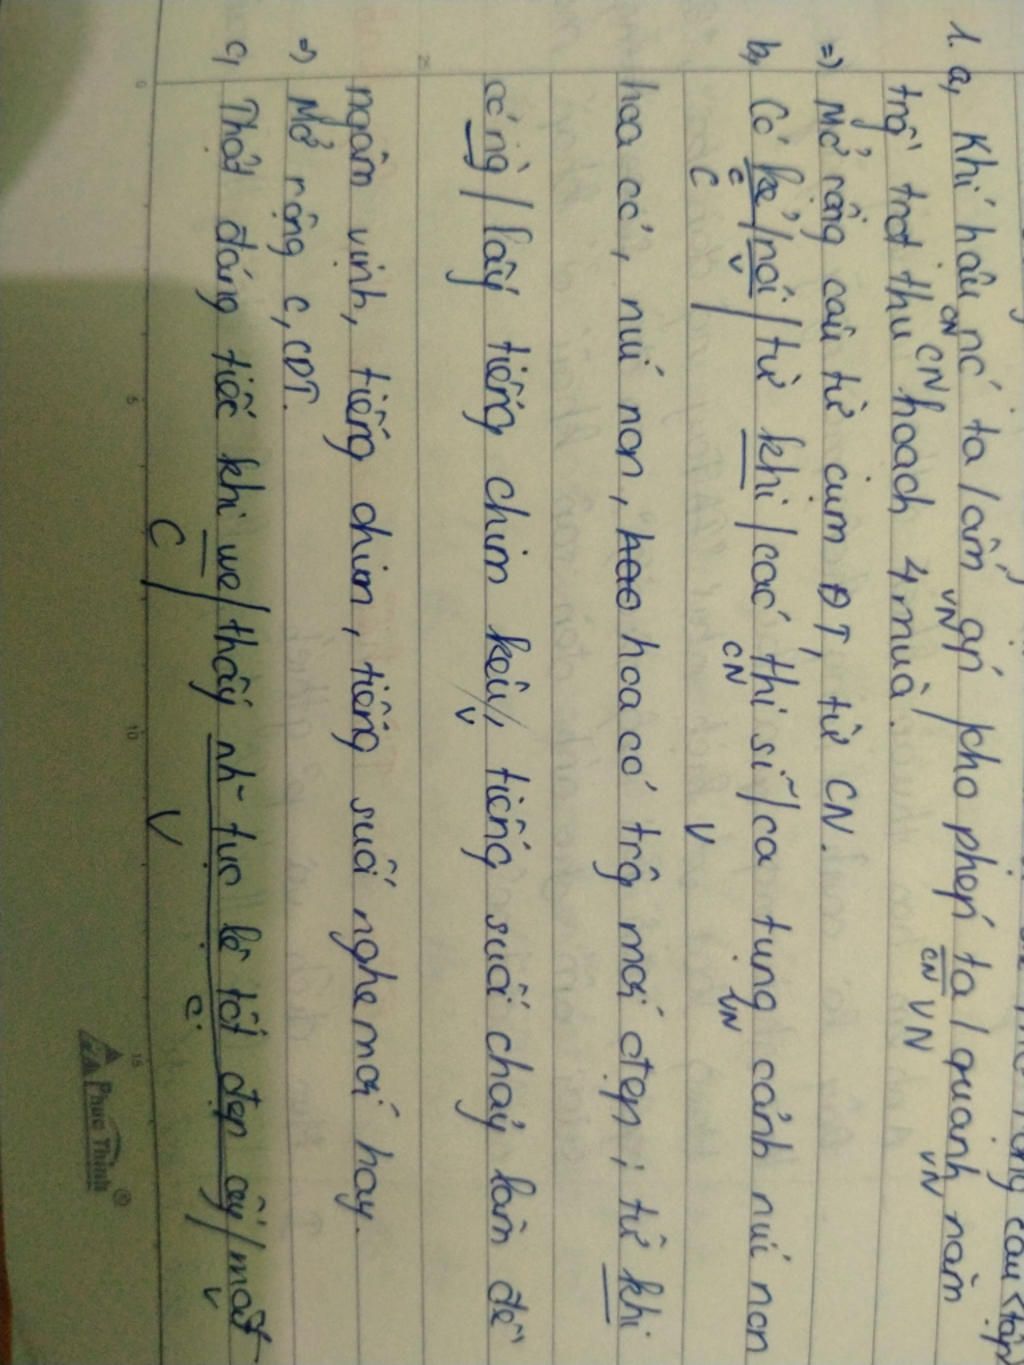 rộng câu (tập
1. a, Khí hậu nc ta / ấm áp / cho phép ta / quanh năm
CN VN CN VN
CN VN
trồ trọt thu hoạch 4 mùa.
=) Mở rộng câu từ cụm ĐT, từ CN.
b, Có kẻ / nói / từ khi / các thi sĩ / ca tụng cảnh núi non
C V CN VN
C V
hoa cỏ, núi non, hoa cỏ trôg mới đẹp; từ khi
có ng / lấy tiếng chim kêu, tiếng suối chảy làm đề
V
ngâm vịnh, tiếng chim, tiếng suối nghe mới hay.
=) Mở rộng C, CDT.
c, Thật đáng tiếc khi we / thấy nh~ tục lệ tốt đẹp ấy / mất
C V
C V
Phuc Thinh ®
25
0 5 10 15